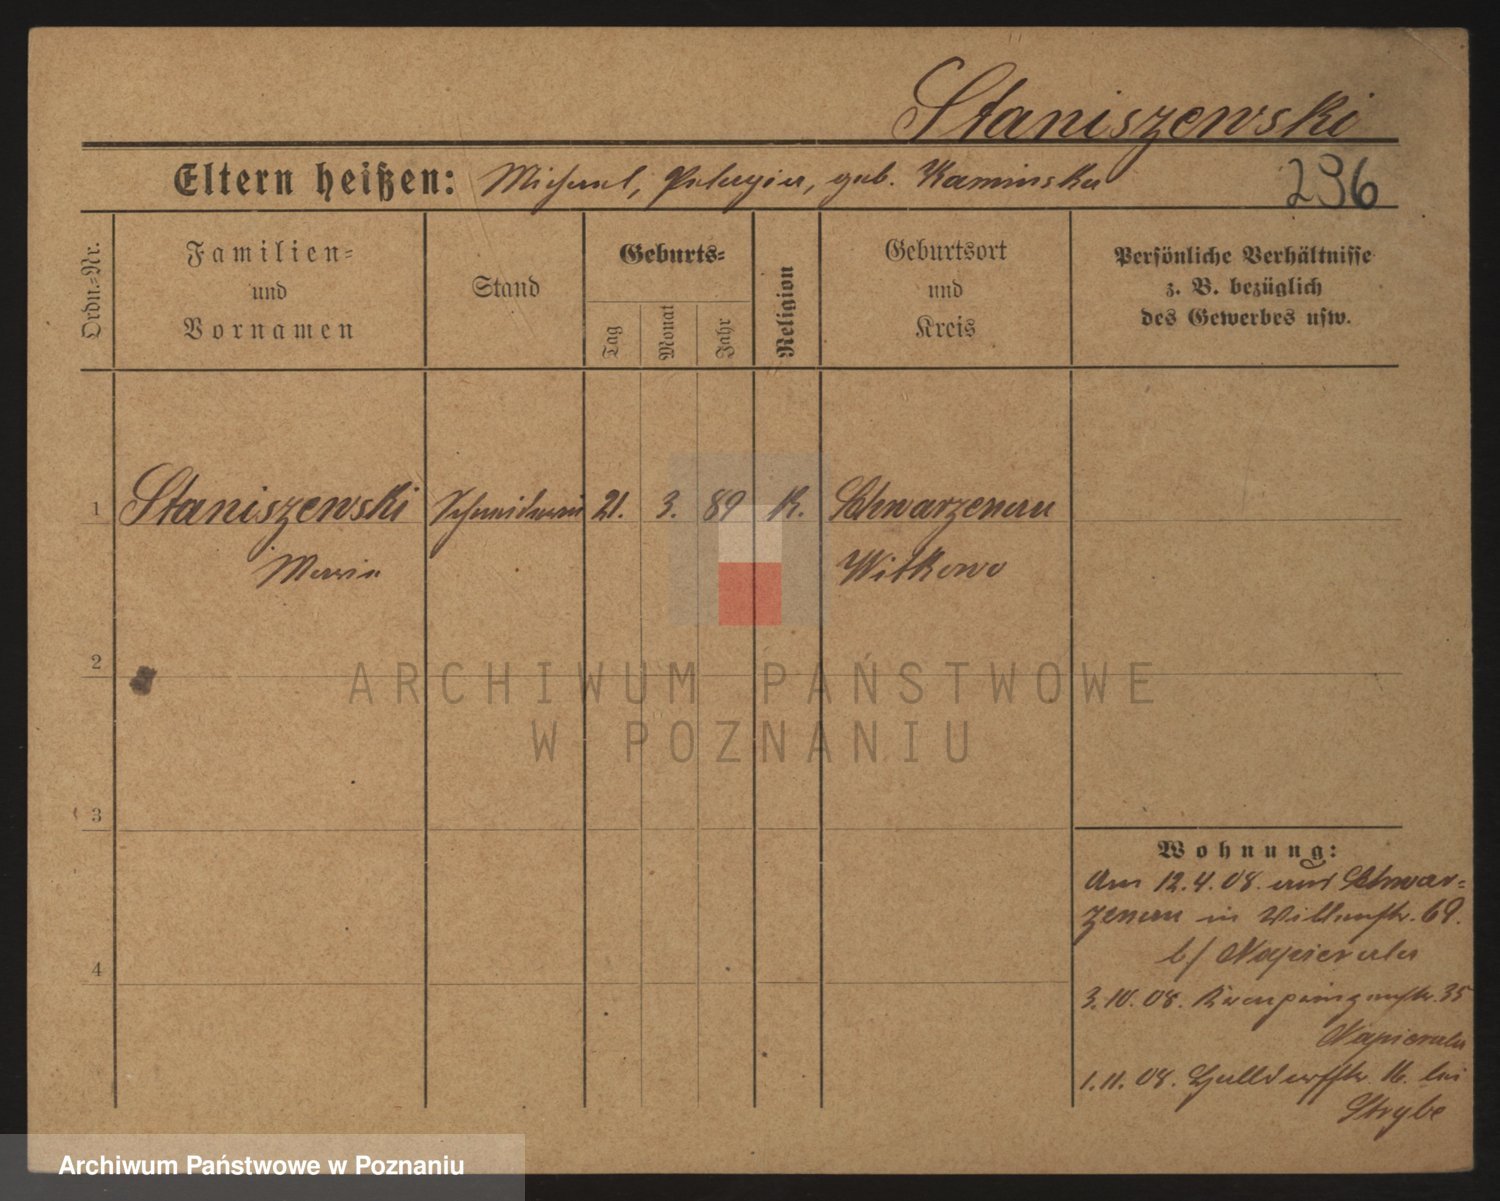 Staniszewski
Eltern heißen: Michael, Pelagia, geb. Kaminska
296
Ordn.-Nr.
Familien-
und
Vornamen
Stand
Geburts-
Tag
Monat
Jahr
Religion
Geburtsort
und
Kreis
Persönliche Verhältnisse
z. B. bezüglich
des Gewerbes usw.
1 Staniszewski Schneiderin 21. 3. 89 K. Schwarzenau
Maria Witkowo
2
ARCHIWUM PAŃSTWOWE
W POZNANIU
3
Wohnung:
Am 12.4.08. aus Schwar-
zenau in 69.
b/ Napierala
4
3.10.08. Kronprinzenstr. 35
Napierala
1.11.08. 16. bei
Strybe
Archiwum Państwowe w Poznaniu